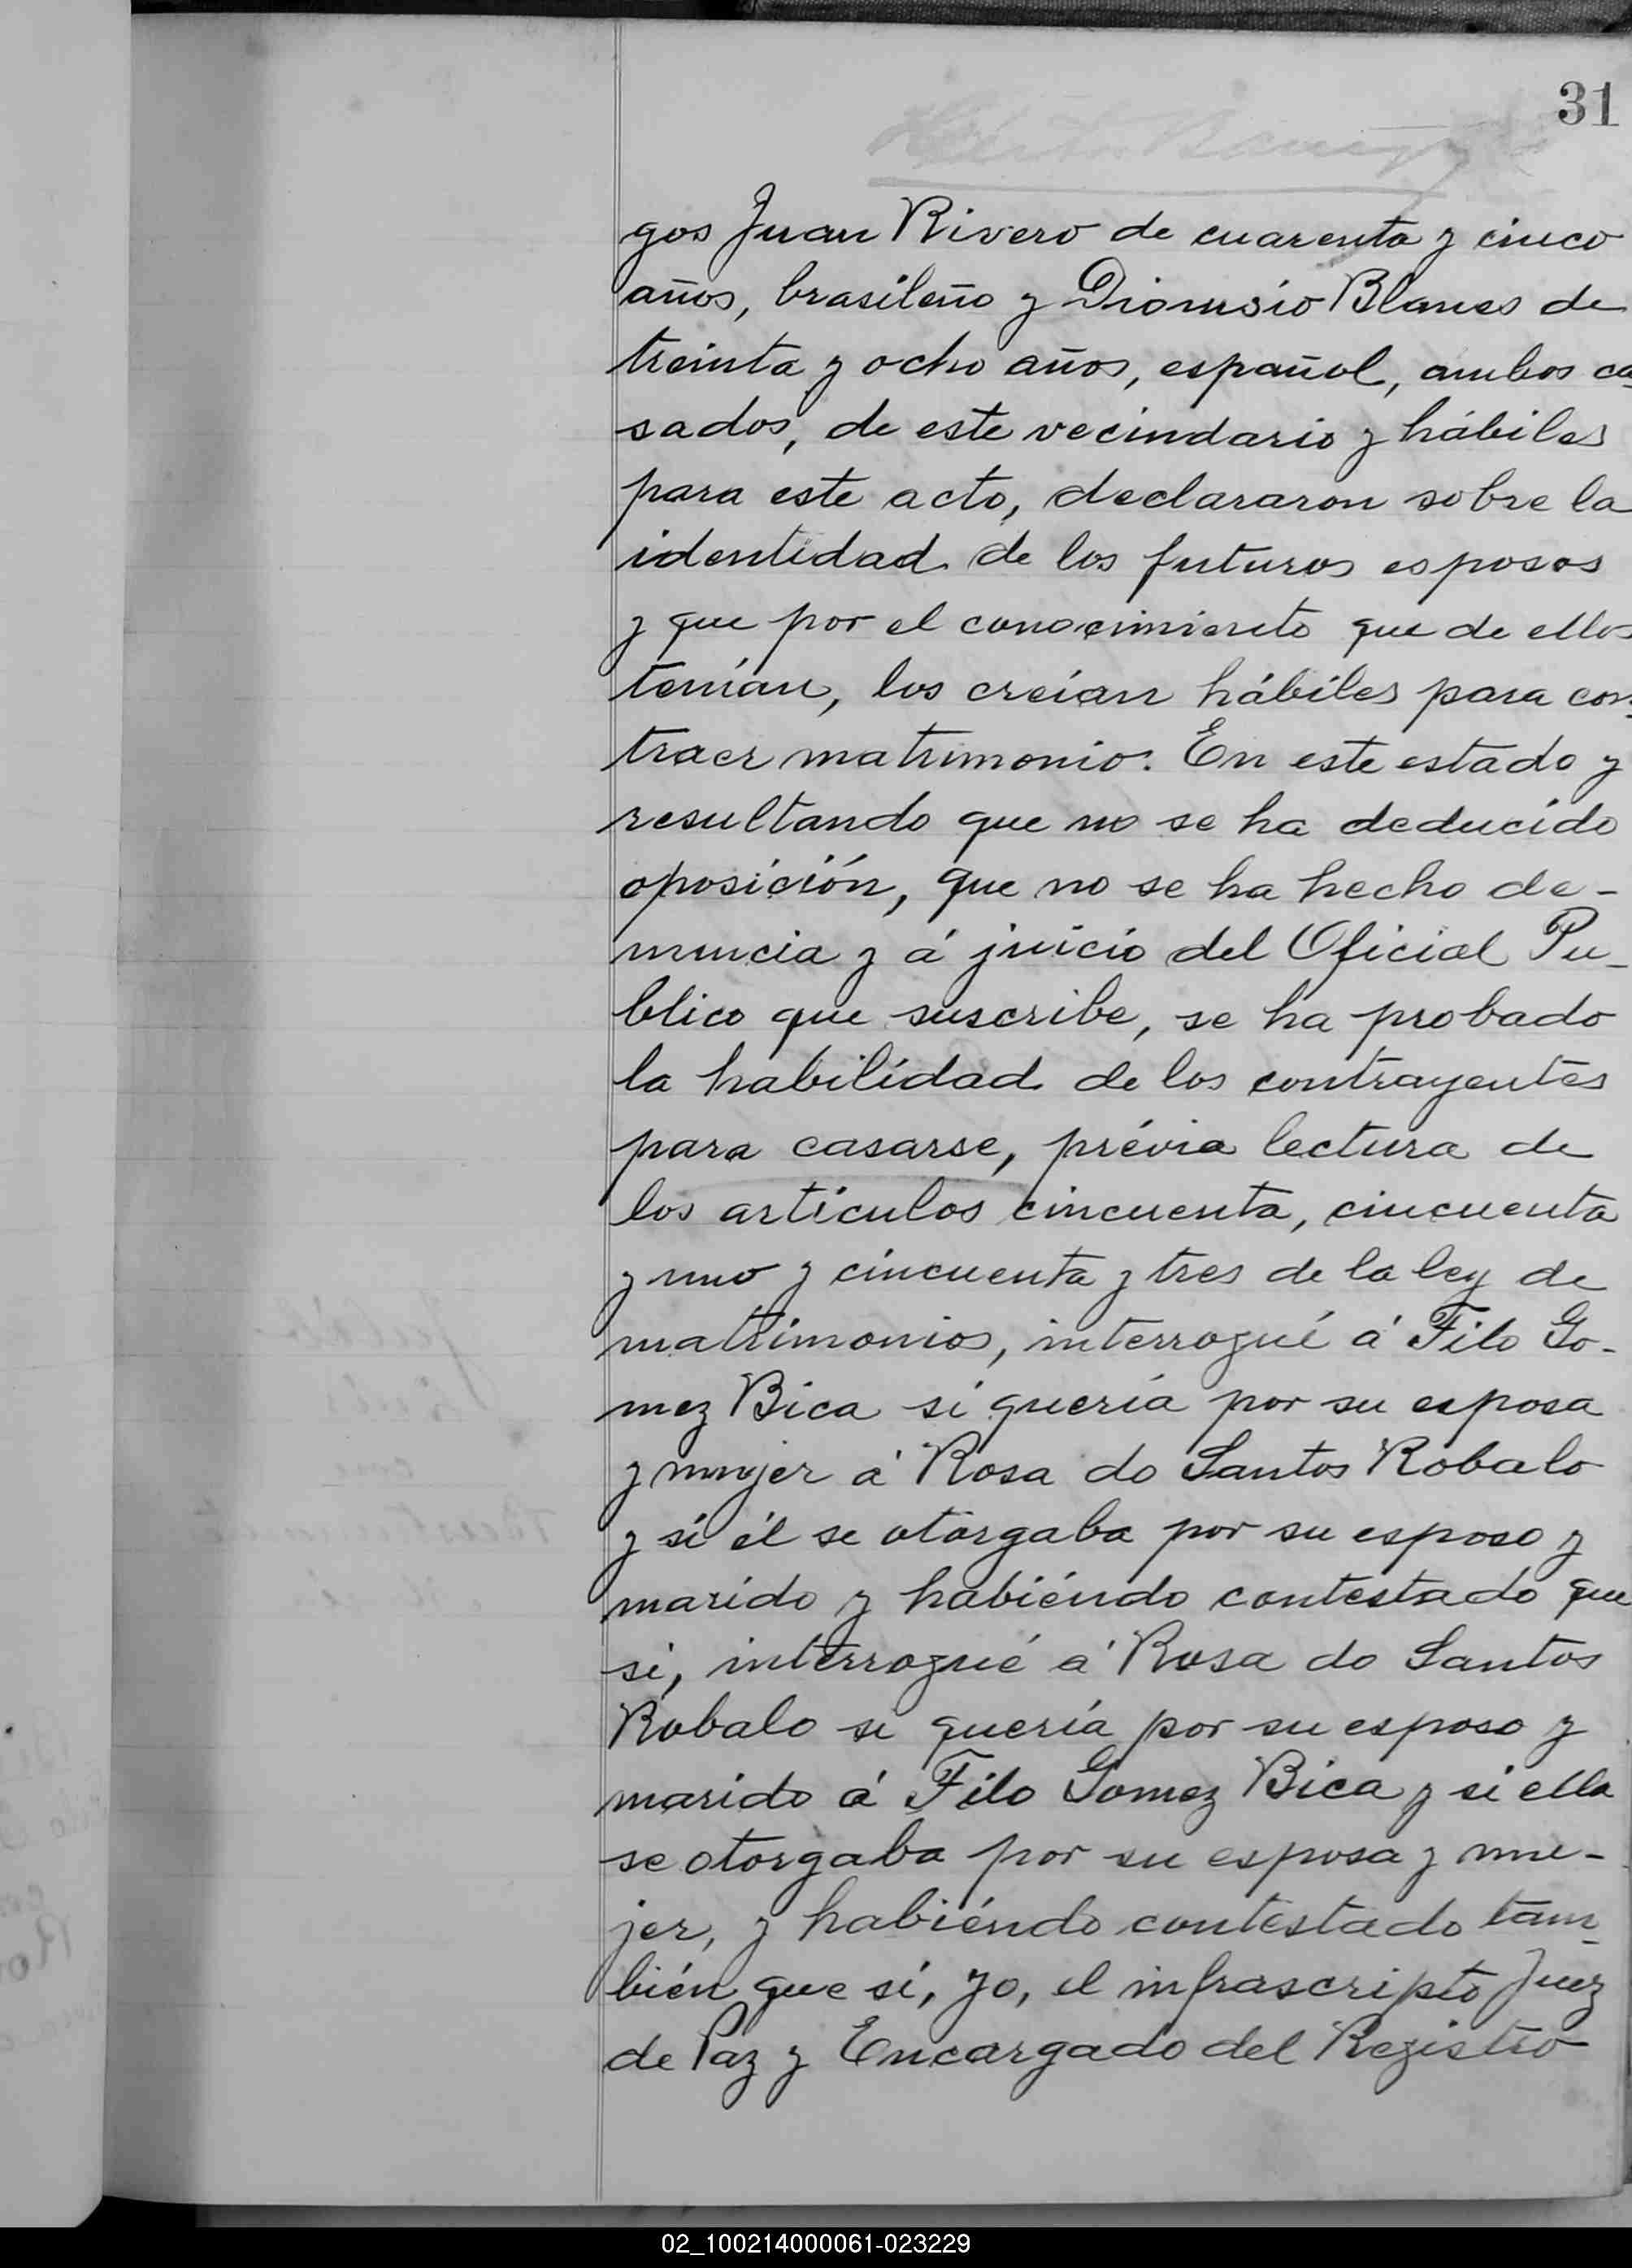 31
gos Juan Rivero de cuarenta y cinco
años, brasileño y Dionisio Blanes de
treinta y ocho años, español, ambos ca
sados, de este vecindario y hábiles
para este acto, declararon sobre la
identidad de los futuros esposos
y que por el conocimiento que de ellos
tenían, los creían hábiles para con-
traer matrimonio. En este estado y
resultando que no se ha deducido
oposición, que no se ha hecho de-
nuncia y á juicio del Oficial Pu-
blico que suscribe, se ha probado
la habilidad de los contrayentes
para casarse, prévia lectura de
los artículos cincuenta, cincuenta
y uno y cincuenta y tres de la ley de
matrimonios, interrogué á Filo Go-
mez Bica si quería por su esposa
y mujer á Rosa do Santos Robalo
y si él se otorgaba por su esposo y
marido y habiéndo contestado que
si, interrogué á Rosa do Santos
Robalo si quería por su esposo y
marido á Filo Gomez Bica y si ella
se otorgaba por su esposa y mu-
jer, y habiéndo contestado tam-
bién que sí, yo, el infrascripto Juez
de Paz y Encargado del Registro
02_100214000061-023229